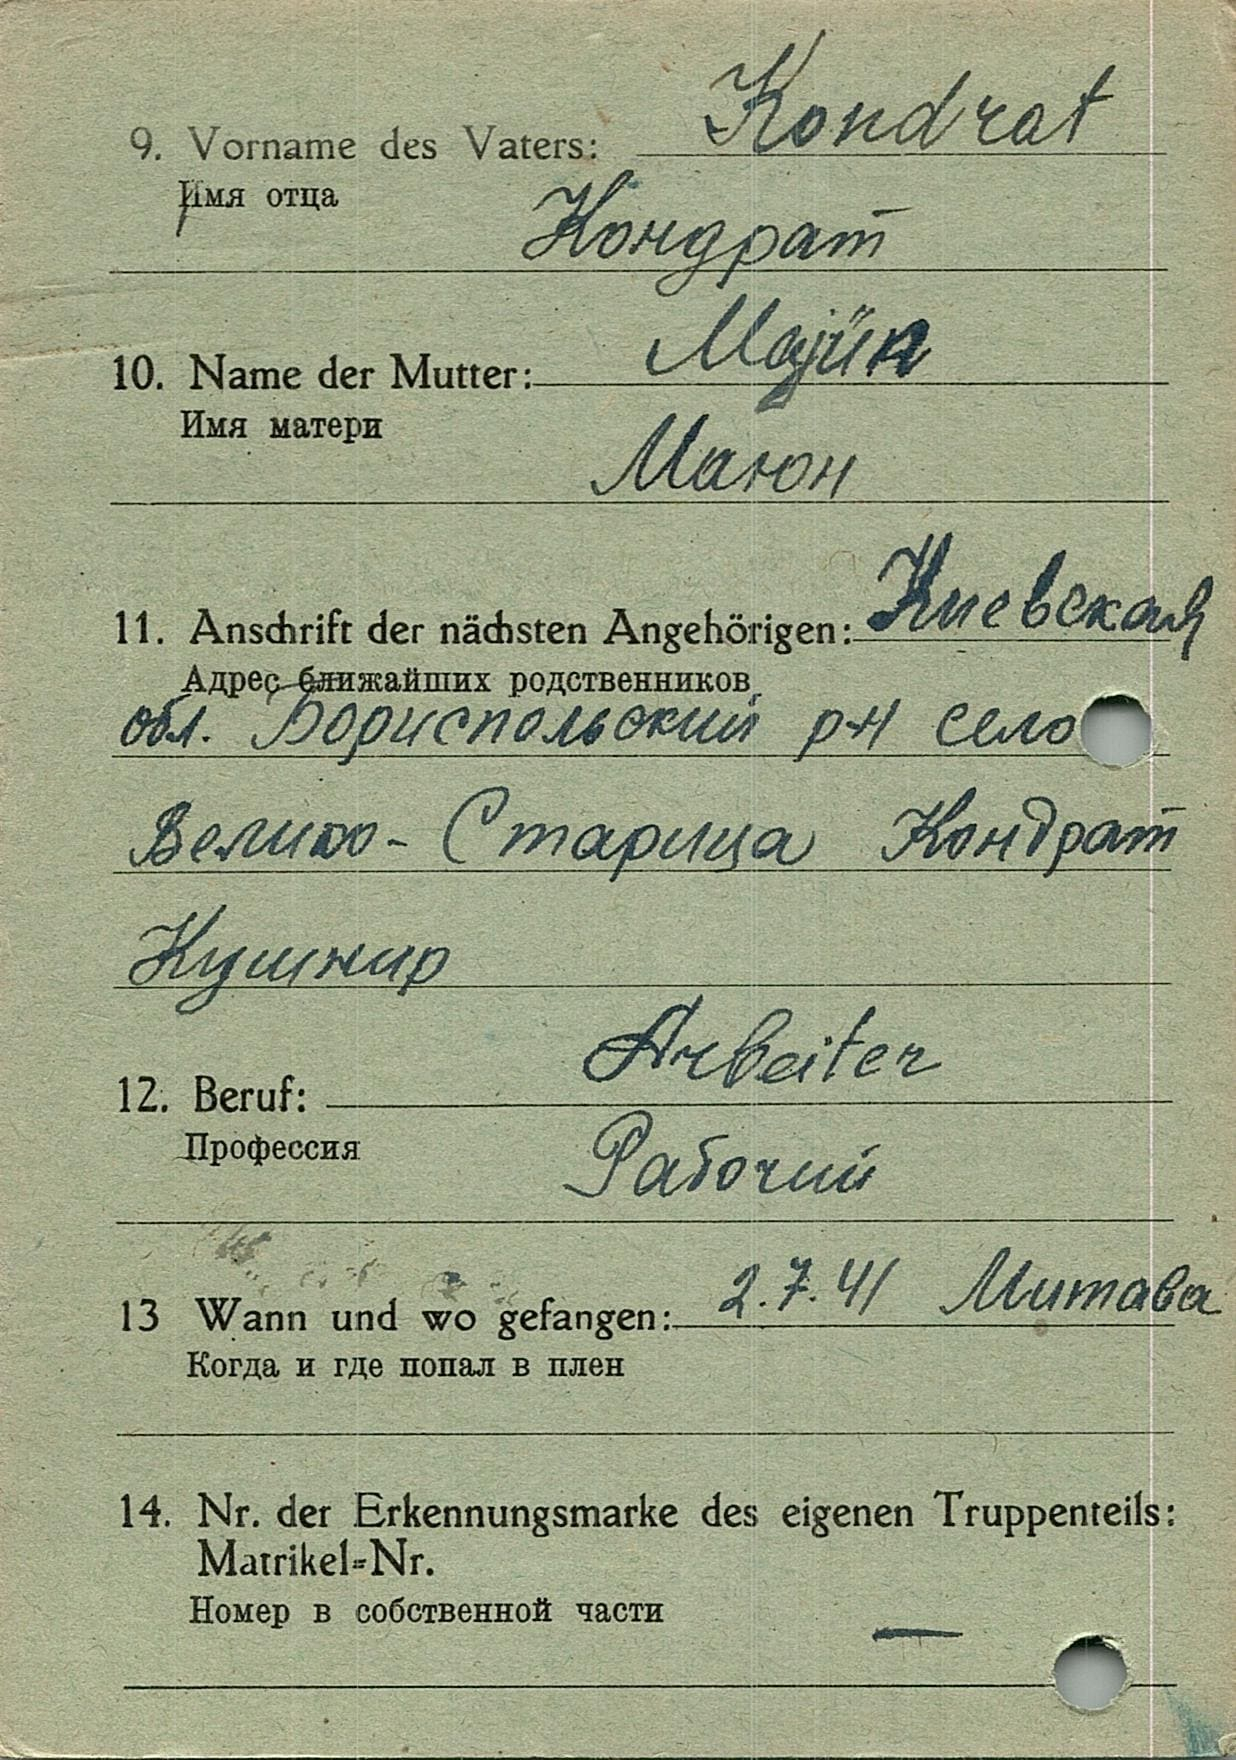 9. Vorname des Vaters: Kondrat
Имя отца
Кондрат
10. Name der Mutter: Majün
Имя матери
Маюн
11. Anschrift der nächsten Angehörigen: Киевская
Адрес ближайших родственников
обл. Бориспольский р-н село
Велико-Старица Кондрат
Кушнир
12. Beruf: Arbeiter
Профессия
Рабочий
13 Wann und wo gefangen: 2.7.41 Митава
Когда и где попал в плен
14. Nr. der Erkennungsmarke des eigenen Truppenteils:
Matrikel=Nr.
Номер в собственной части
—